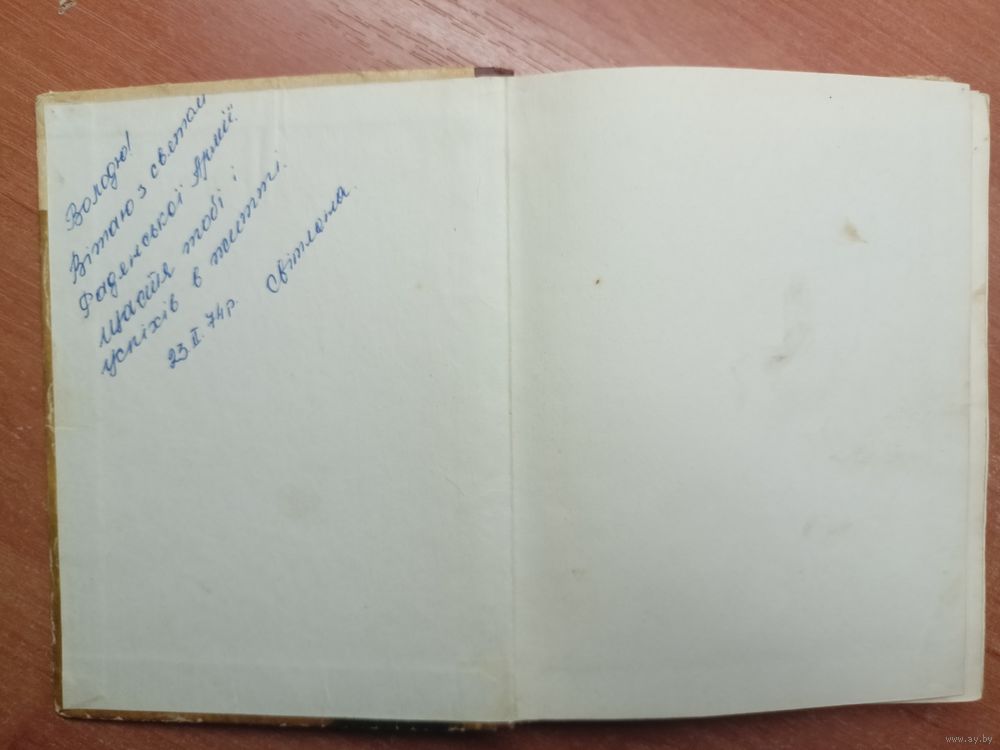 Володю!
Вітаю з светом
Радянської Армії.
Щастя тобі і
успіхів в житті.
23.II.74р. Світлана.
www.ay.by